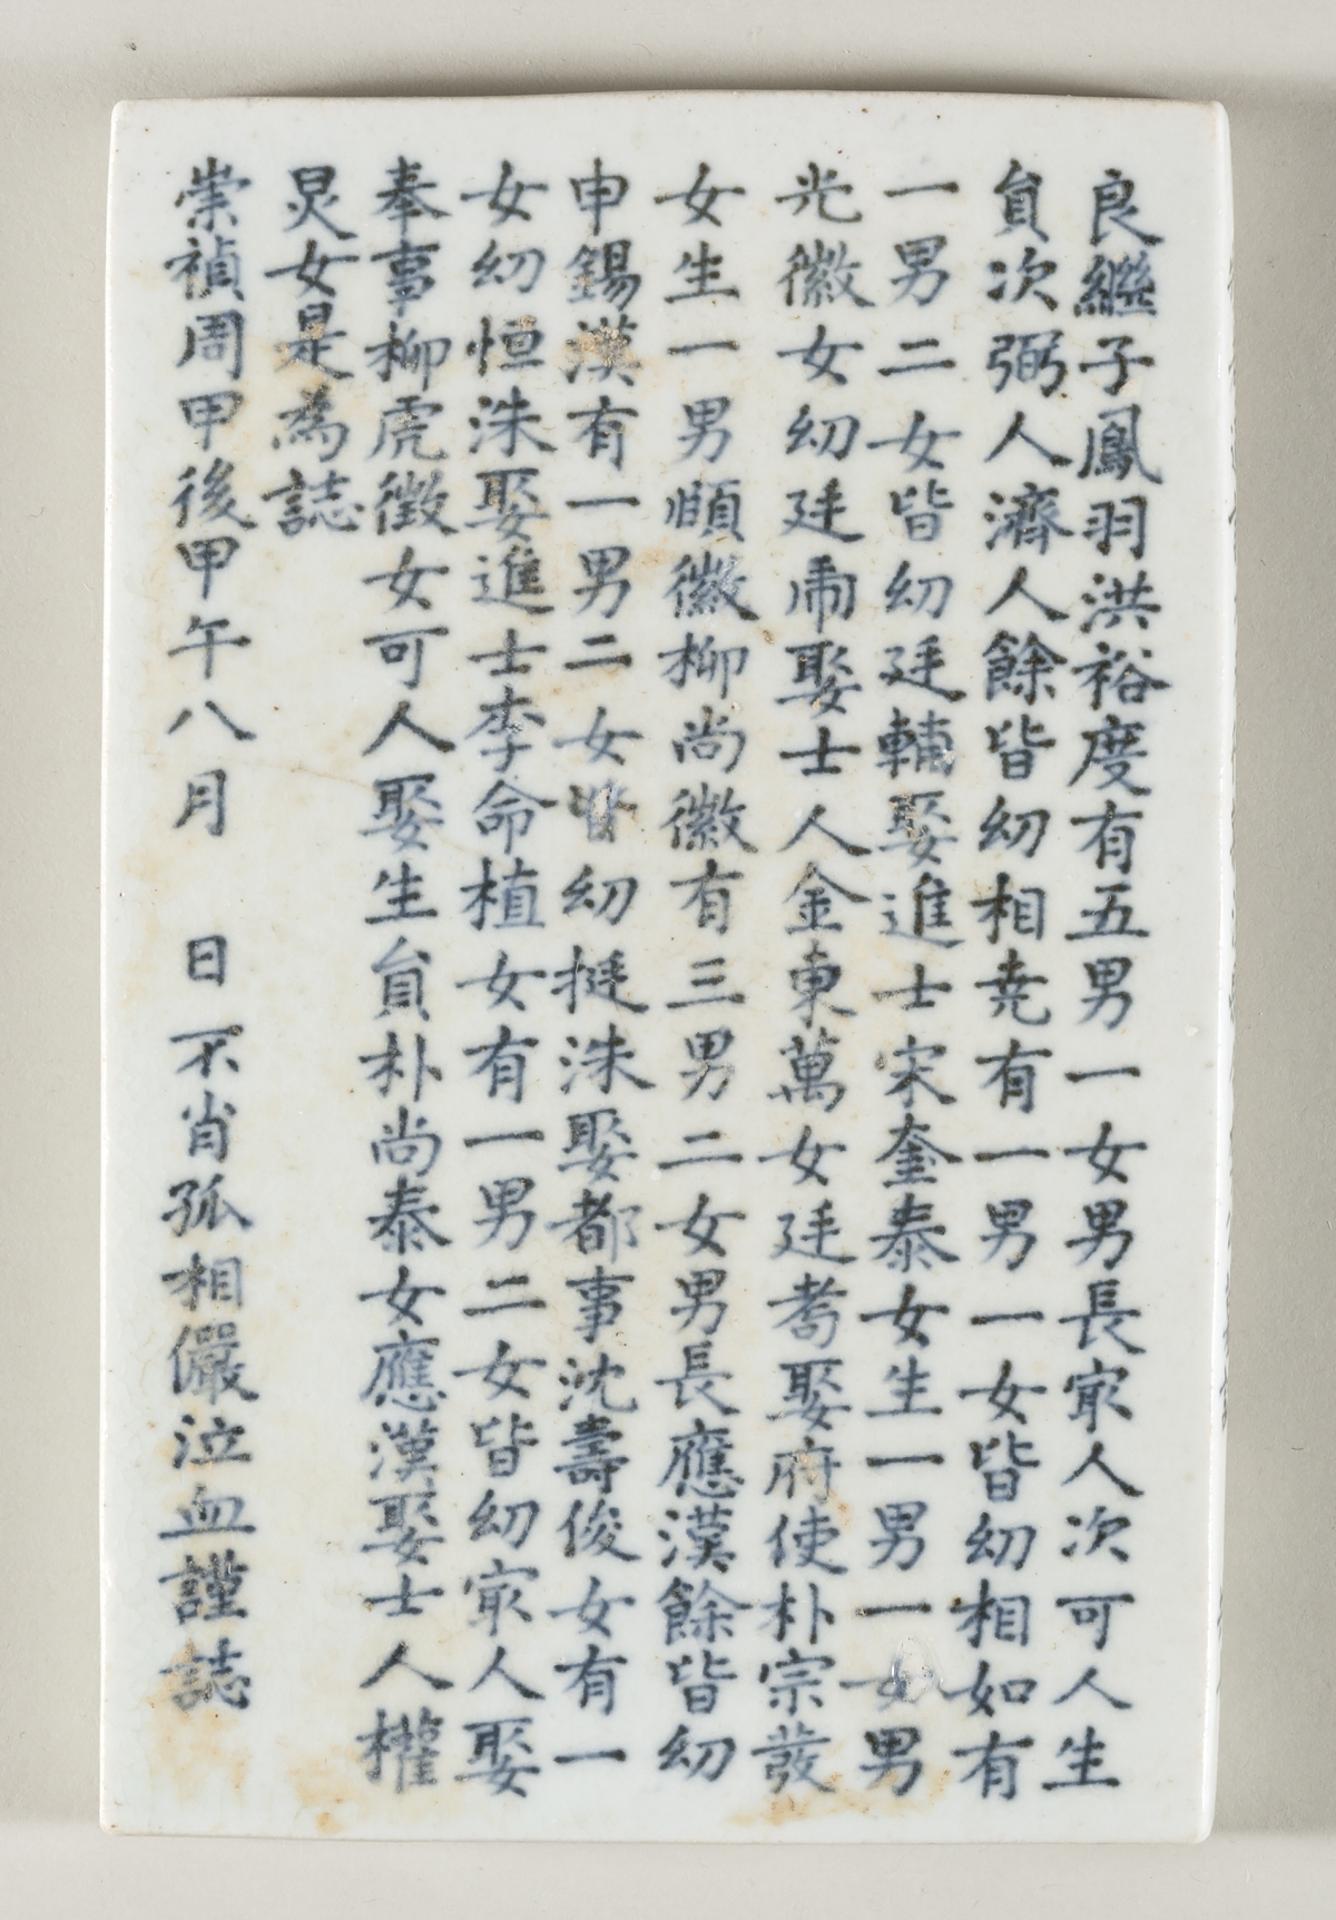 良繼子鳳羽洪裕度有五男一女男長㝡人次可人生
貟次弼人濟人餘皆幼相堯有一男一女皆幼相如有
一男二女皆幼廷輔娶進士宋奎泰女生一男一女男
光徽女幼廷鼐娶士人金東萬女廷耉娶府使朴宗發
女生一男頤徽柳尚徽有三男二女男長應漢餘皆幼
申錫漢有一男二女皆幼挺洙娶都事沈壽俊女有一
女幼恒洙娶進士李命植女有一男二女皆幼㝡人娶
奉事柳虎徵女可人娶生貟朴尚泰女應漢娶士人權
炅女是為誌
崇禎周甲後甲午八月 日不肖孤相儼泣血謹誌